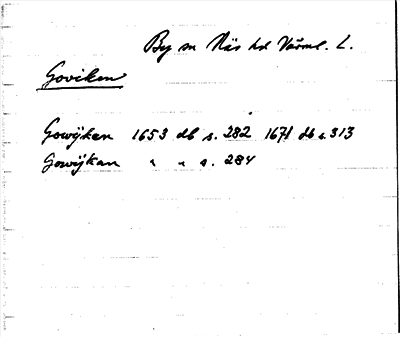 By sn Näs hd Värml. L.
Goviken
Gowijkan 1653 db s. 282 1671 db s. 313
Gowijkan " " s. 284